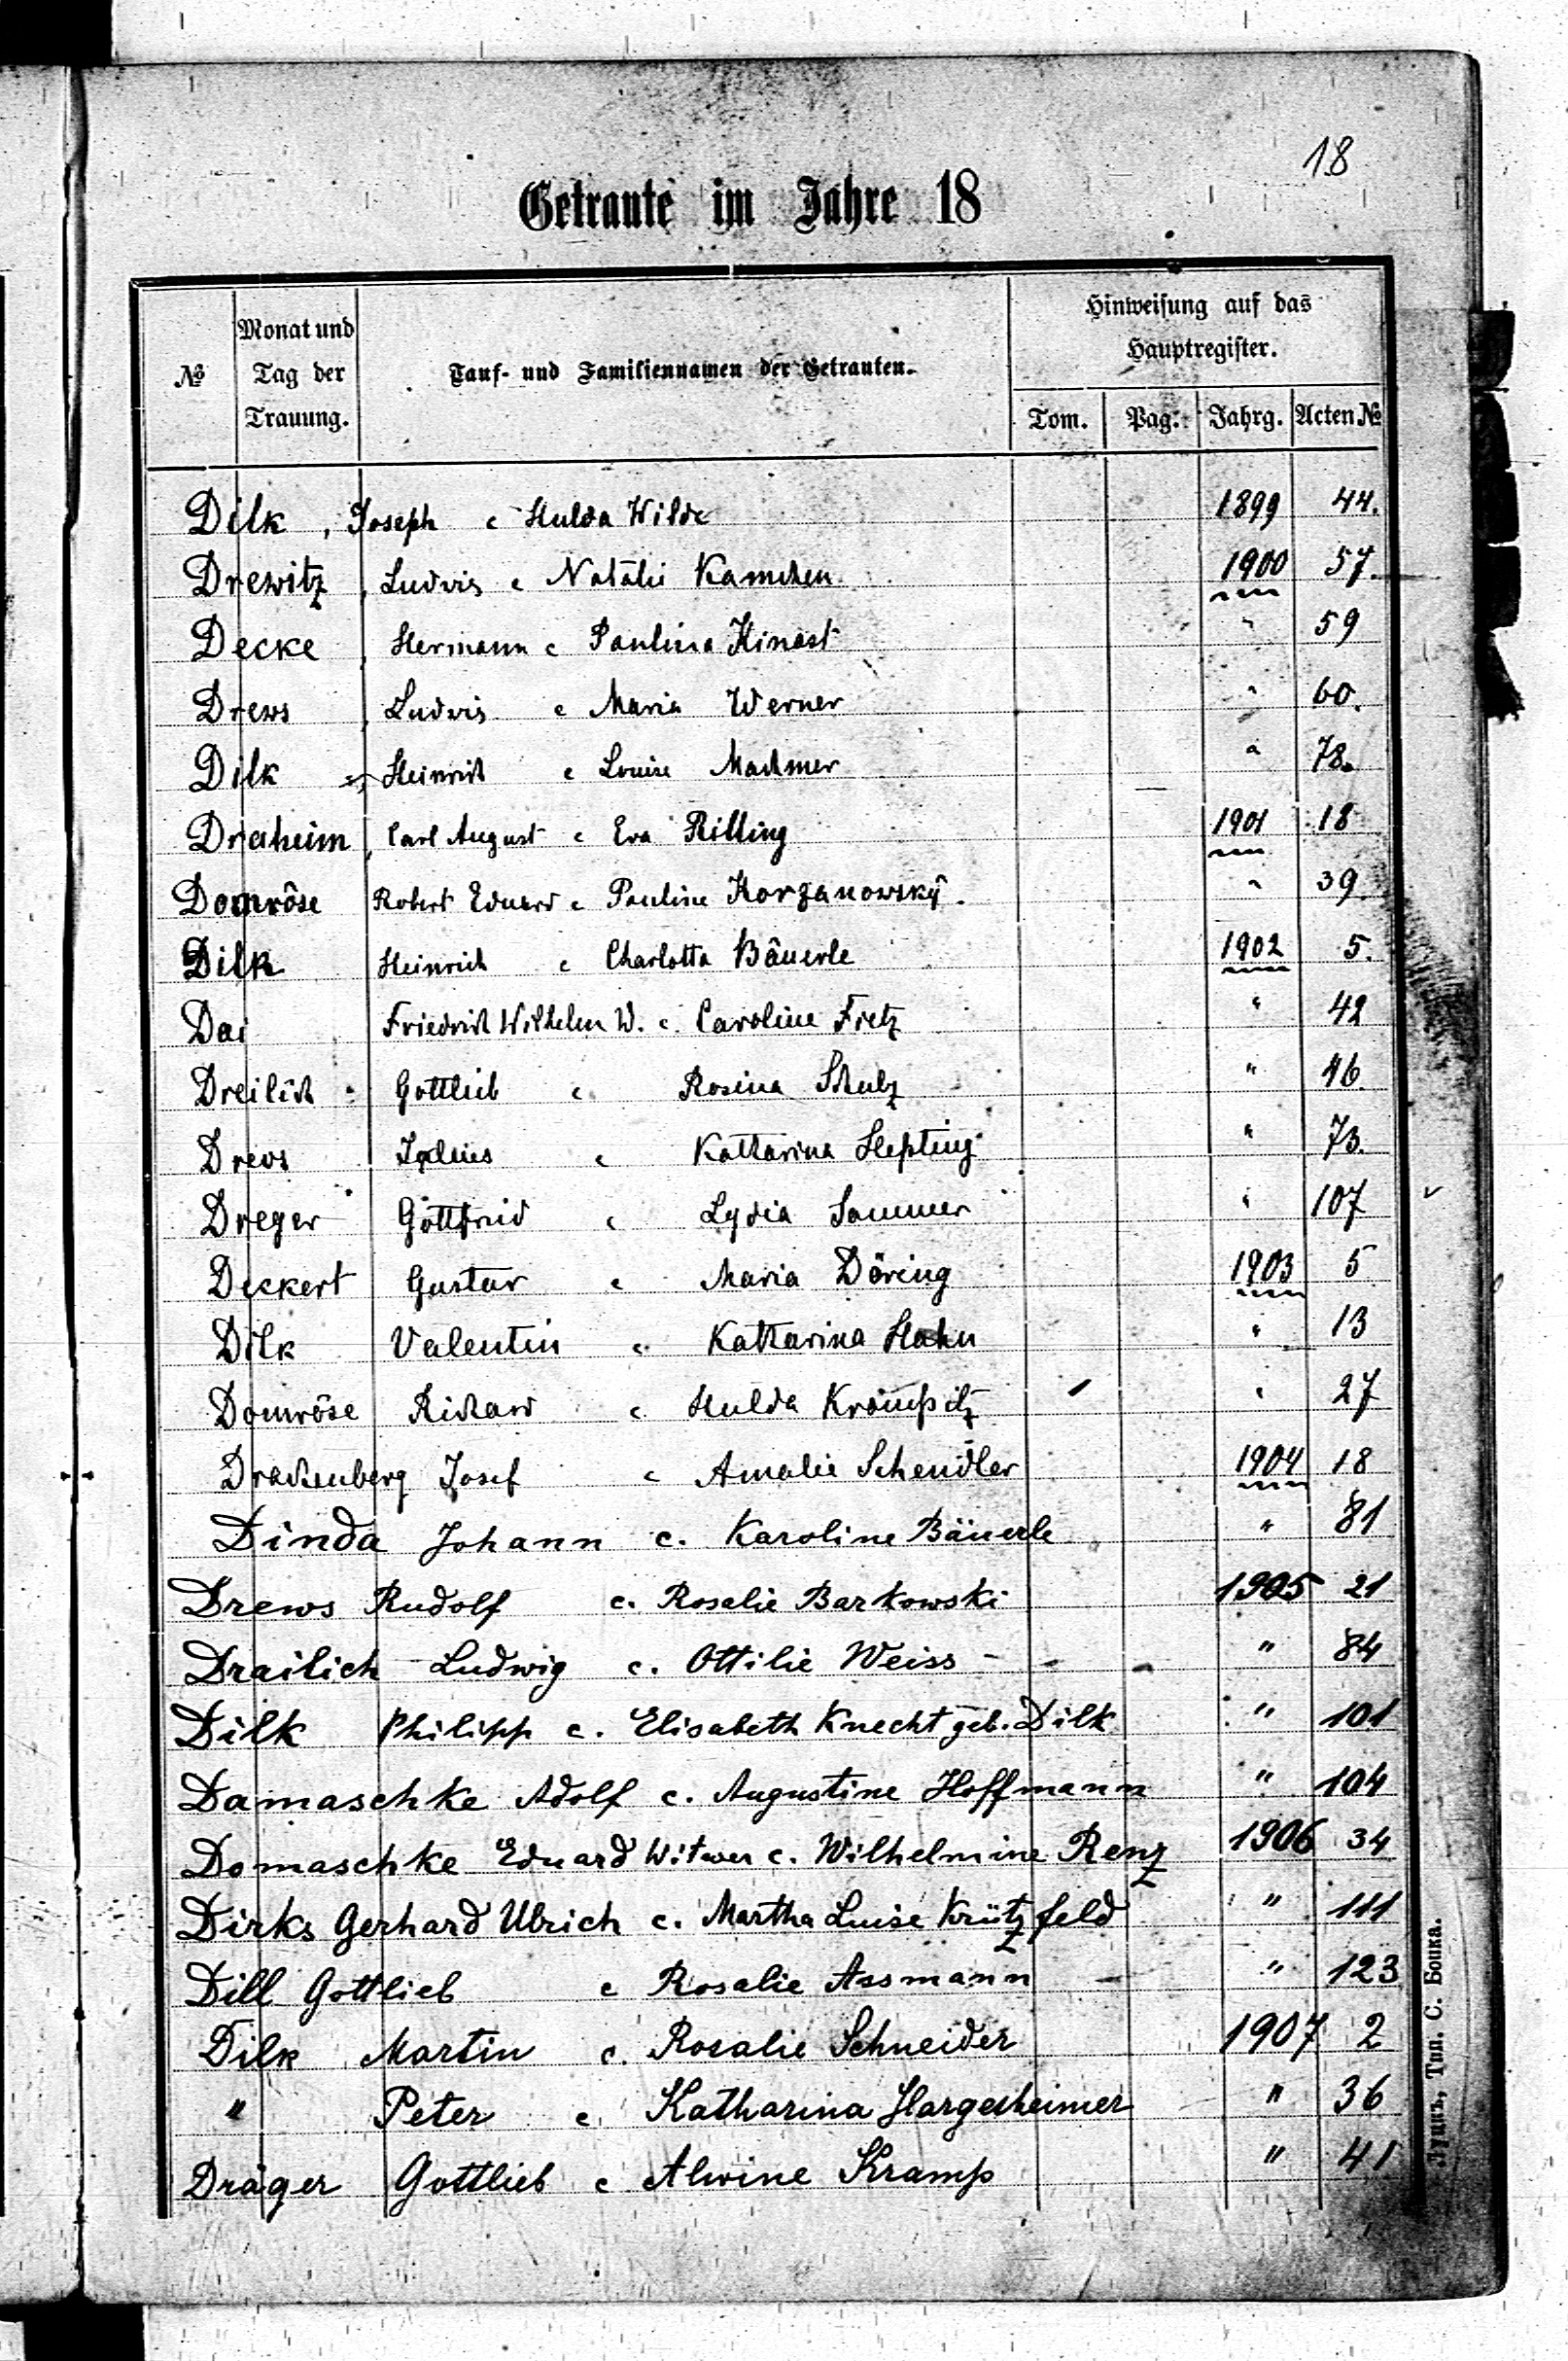 18
Getraute im Jahre 18
№ Monat und Tag der Trauung. Tauf- und Familiennamen der Getrauten. Hinweisung auf das Hauptregister.
Tom. Pag. Jahrg. Acten №
Dilk, Joseph c Hulda Wilde 1899 44.
Drewitz, Ludvig c Natalie Kamchen 1900 57.
Decke, Hermann c Paulina Kinast " 59
Drews, Ludvig c Maria Werner " 60.
Dilk, Heinrich c Louise Machmer " 78.
Draheim, Carl August c Eva Rilling 1901 18
Domröse Robert Eduard c Pauline Korzanowsky. " 39.
Dilk Heinrich c Charlotta Bäuerle 1902 5.
Dai Friedrich Wilhelm W. c. Caroline Fietz " 42
Dreilich Gottlieb c. Rosina Schulz " 46.
Drews Julius c Katharina Hepting " 73.
Dreger Gottfried c Lydia Sommer " 107
Deckert Gustav c Maria Döring 1903 5
Dilk Valentin c. Katharina Hahn " 13
Domröse Richard c. Hulda " 27
Drachenberg Josef c Amalie Schendler 1904 18
Dinda Johann c. Karoline Bäuerle " 81
Drews Rudolf c. Rosalie Barkowski 1905 21
Drailich Ludwig c. Ottilie Weiss " 84
Dilk Philipp c. Elisabeth Knecht geb. Dilk " 101
Damaschke Adolf c. Augustine Hoffmann " 104
Domaschke Eduard Witwer c. Wilhelmine Renz 1906 34
Dirks Gerhard Ulrich c. Martha Luise Krützfeld " 111
Dill Gottlieb c Rosalie Assmann " 123
Dilk Martin c. Rosalie Schneider 1907 2
" Peter c. Katharina Hargesheimer " 36
Dräger Gottlieb c Alwine Kramp " 41
Луцкъ, Тип. С. Бойка.